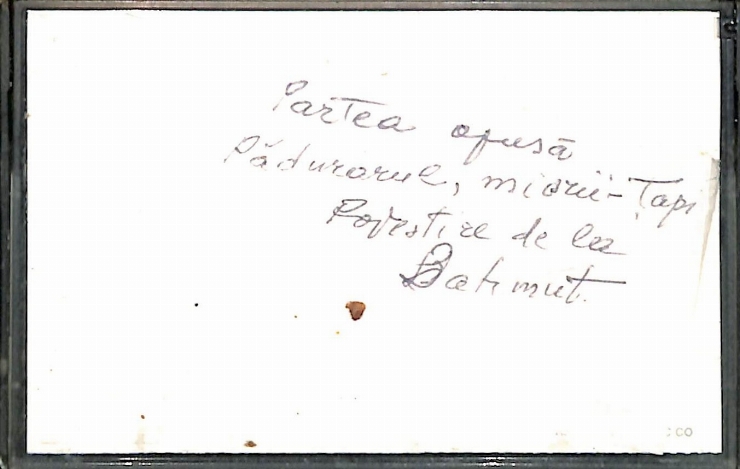 Partea opusă
Pădurarul, miorii-Țapi
Povestire de la
Bahmut.
CO